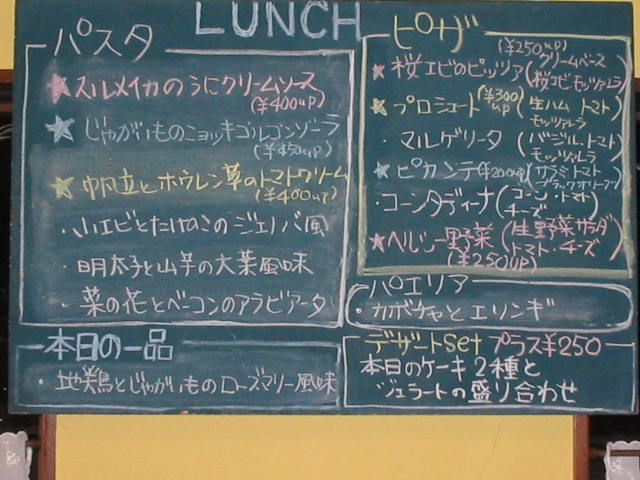 LUNCH
パスタ
★スルメイカのうにクリームソース
(¥400up)
★じゃがいものニョッキゴルゴンゾーラ
(¥450up)
★帆立とホウレン草のトマトクリーム
(¥400up)
・小エビとたけのこのジェノバ風
・明太子と山芋の大葉風味
・菜の花とベーコンのアラビアータ
本日の一品
・地鶏とじゃがいものローズマリー風味
ピザ
(¥250up)
★桜エビのピッツァ(クリームベース
桜エビ・モッツァレラ)
★プロシュート(¥300up)(生ハム トマト
モッツァレラ)
・マルゲリータ(バジル、トマト
モッツァレラ)
★ピカンテ(¥200up)(サラミ・トマト
ブラックオリーブ)
・コンタディーナ(コーン・トマト
チーズ)
★ヘルシー野菜(生野菜サラダ
トマト・チーズ)
(¥250up)
パエリア
・カボチャとエリンギ
デザートset プラス¥250
本日のケーキ2種と
ジェラートの盛り合わせ